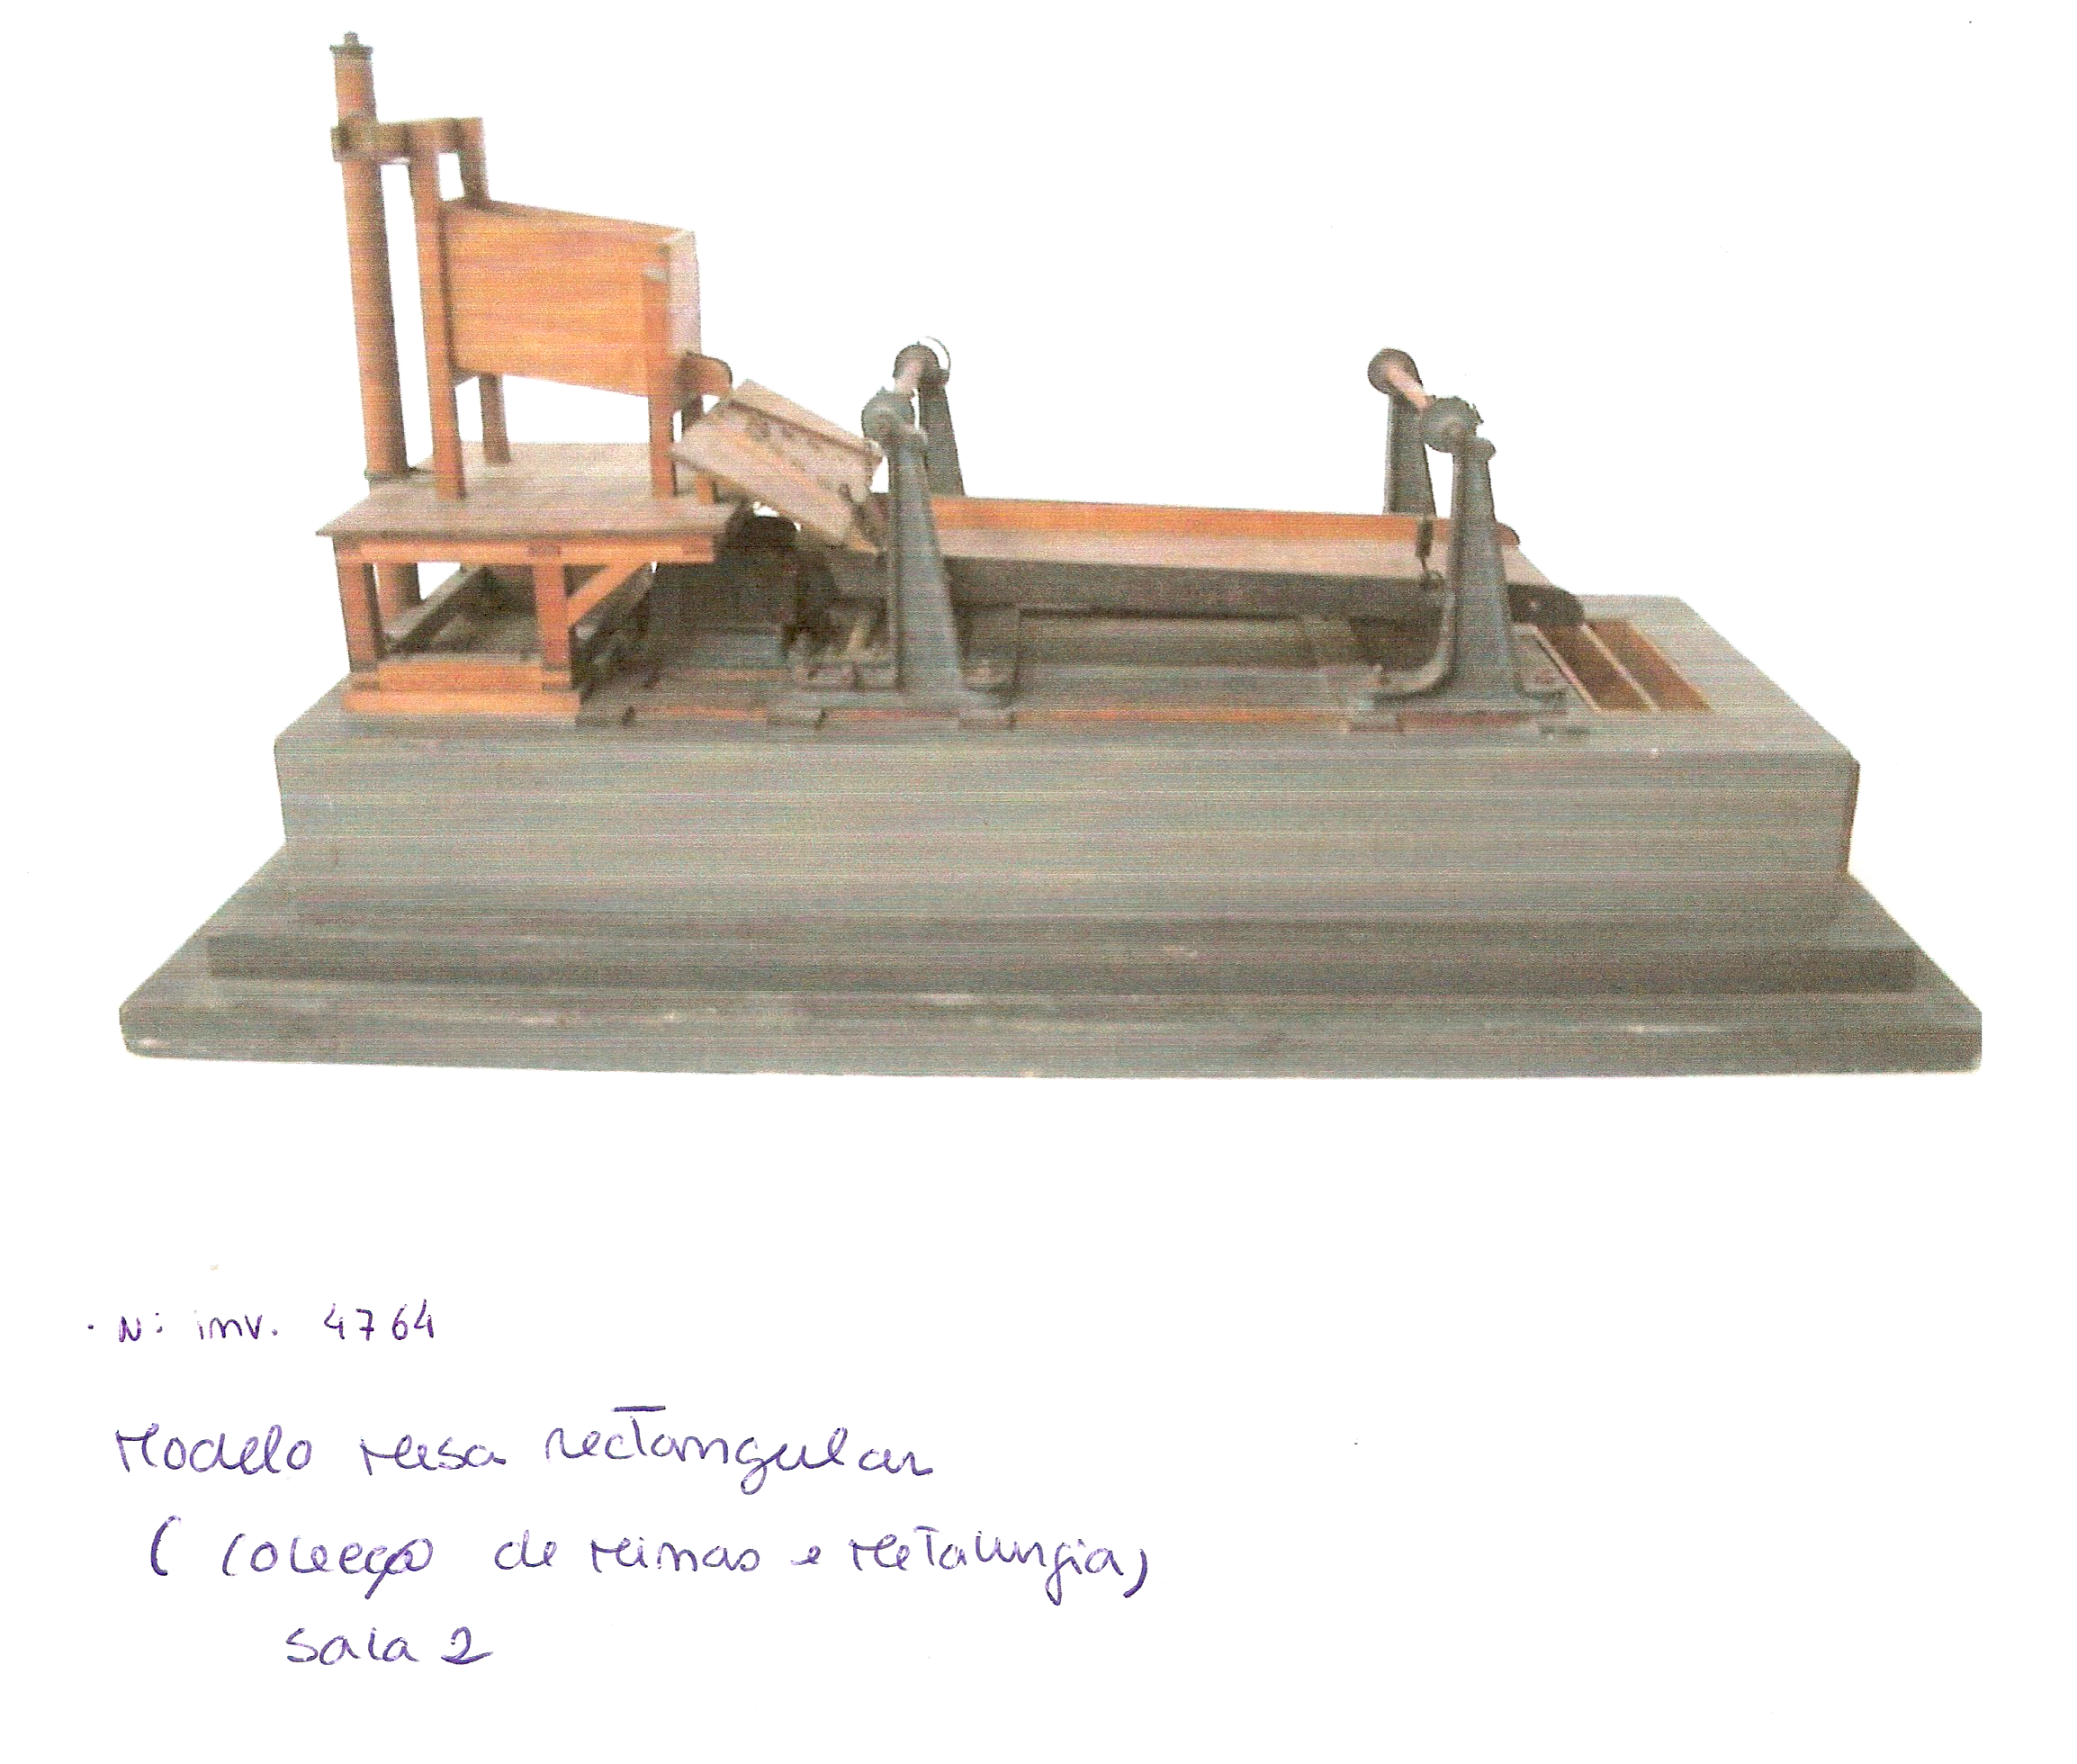 · Nº inv. 4764
Modelo mesa rectangular
( coleção de minas e metalurgia)
sala 2